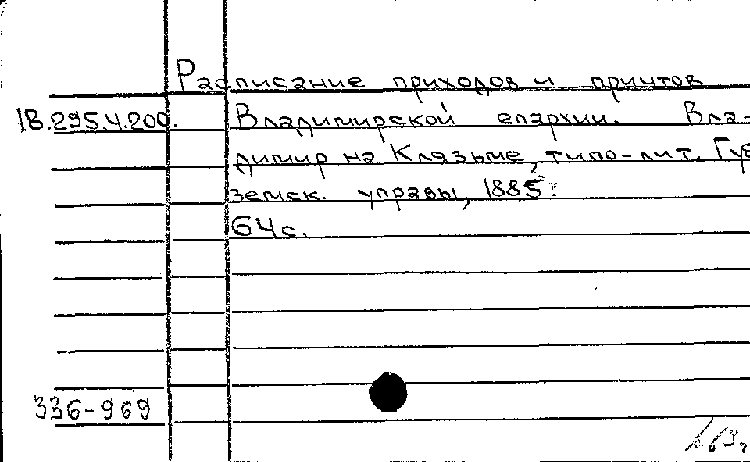 Расписание приходов и причтов
18.295.4.200. Владимирской епархии. Вла-
димир на Клязьме, типо-лит. Губ
земск. управы, 1885.
64 с.
336-969